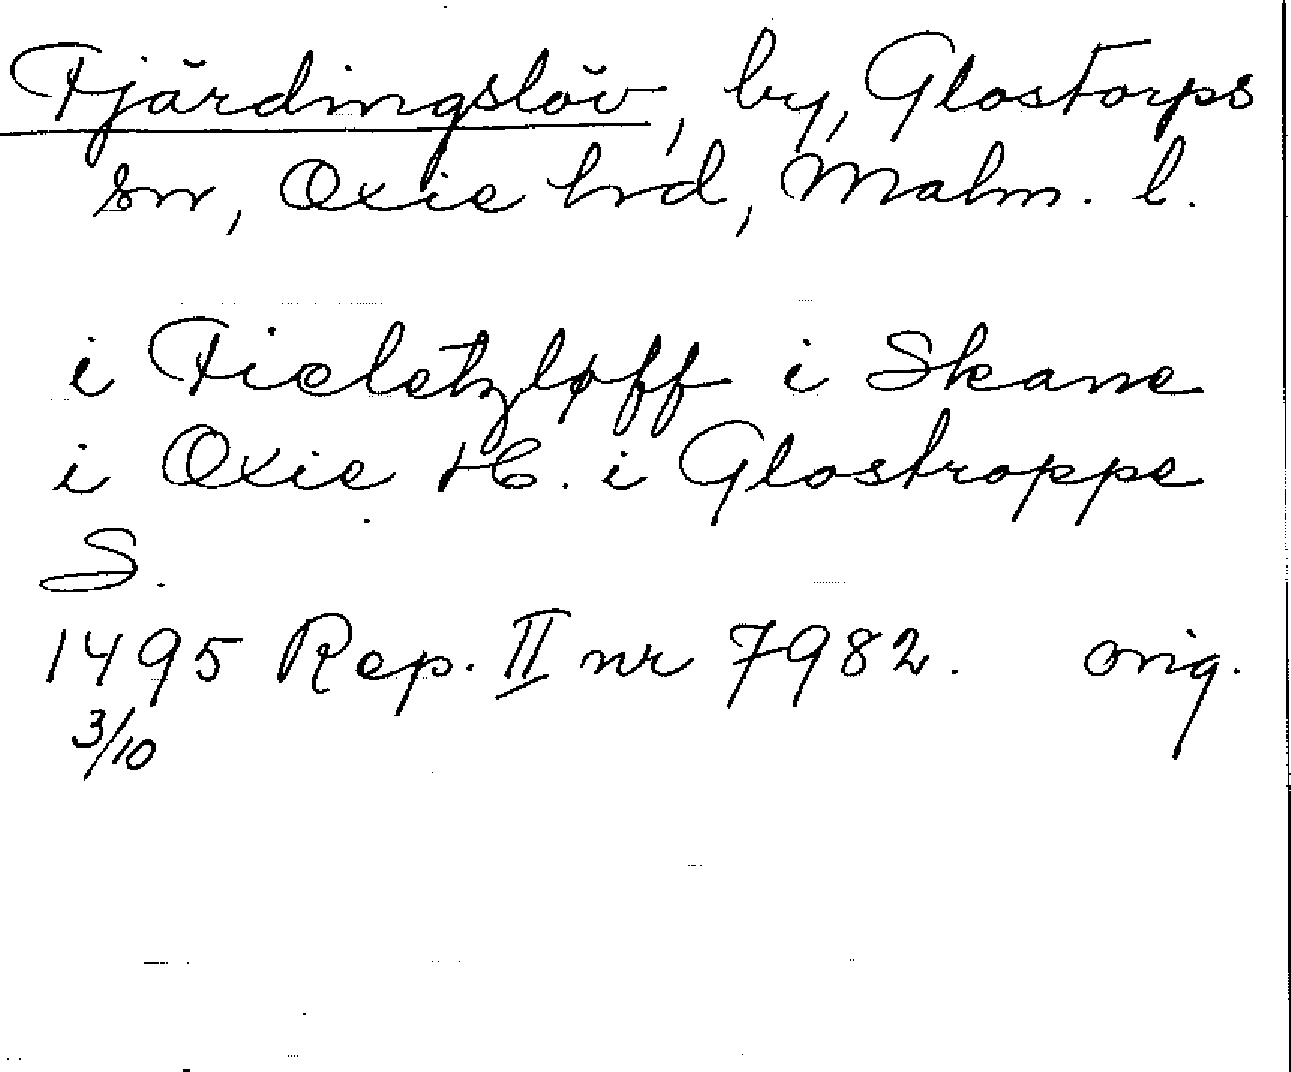 Fjärdingslöv, by, Glostorps
sn, Oxie hrd, Malm. l.
i Fieletzløff i Skane
i Oxie H. i Glostroppe
S.
1495 Rep. II nr 7982. orig.
3/10